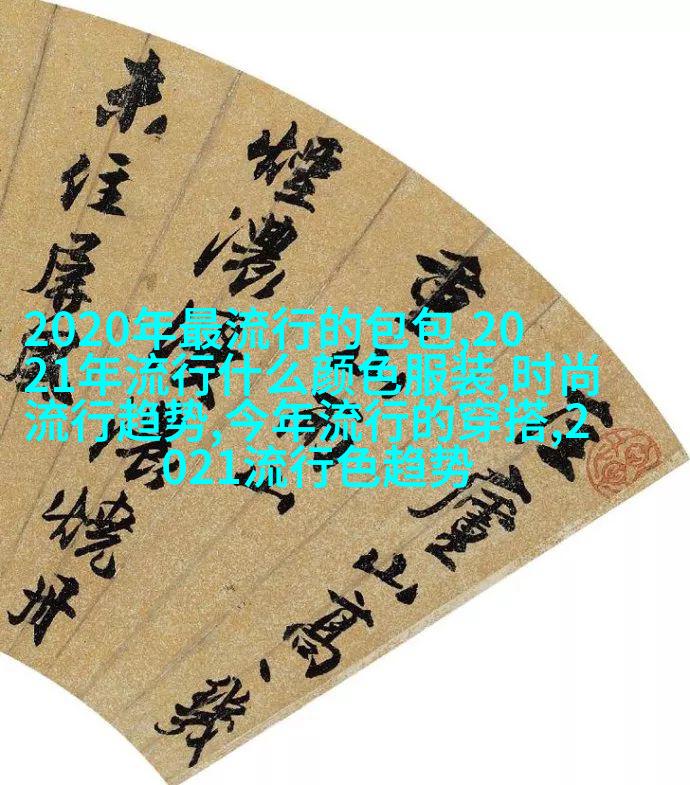 2020年最流行的包包,20
21年流行什么颜色服装,时尚
流行趋势,今年流行的穿搭,2
021流行色趋势
廬山高
山
煙濃濃燒丹
未住屏風